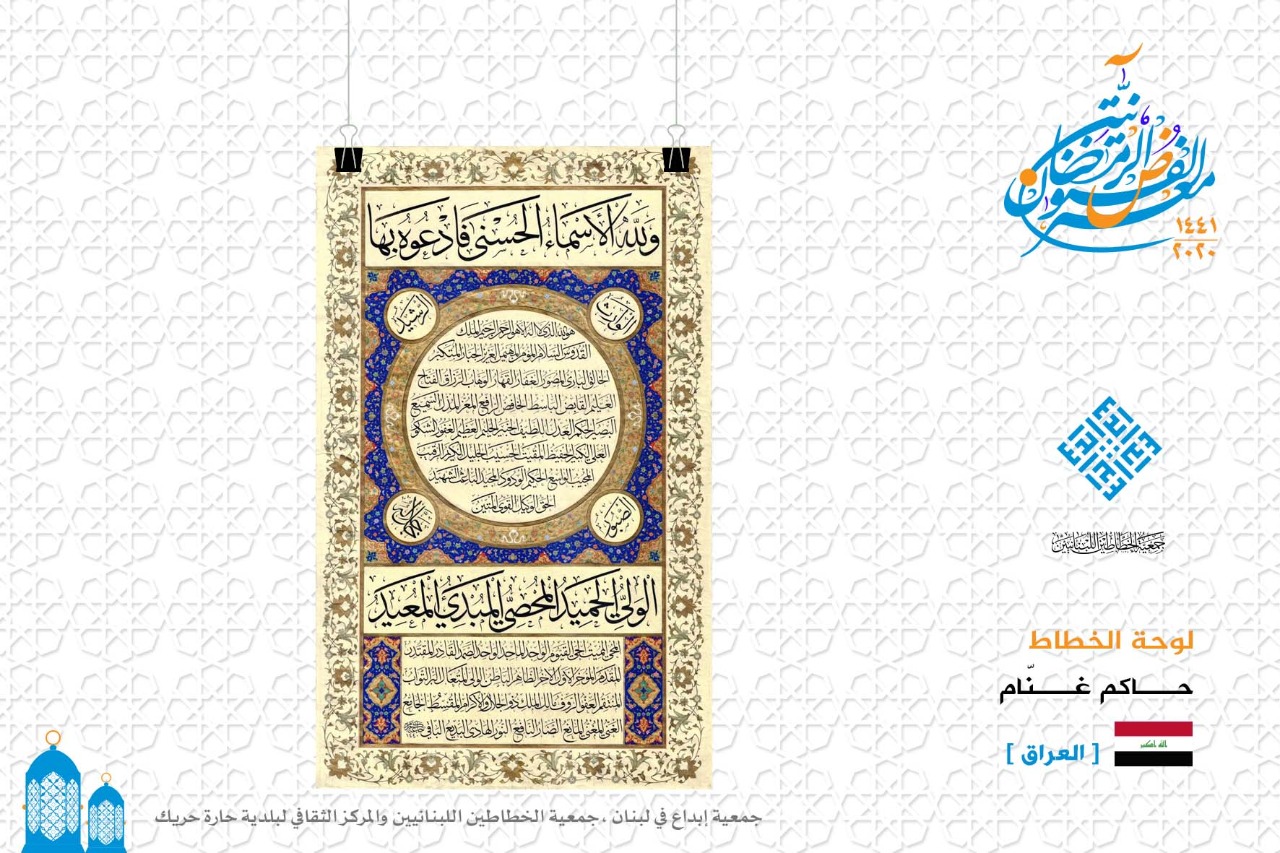 معرض الفنون الرمضانية
١٤٤١
٢٠٢٠
ولله الأسماء الحسنى فادعوه بها
الوارث
الرشيد
هو الله الذي لا إله إلا هو الرحمن الرحيم الملك
القدوس السلام المؤمن المهيمن العزيز الجبار المتكبر
الخالق البارئ المصور الغفار القهار الوهاب الرزاق الفتاح
العليم القابض الباسط الخافض الرافع المعز المذل السميع
البصير الحكم العدل اللطيف الخبير الحليم العظيم الغفور الشكور
العلي الكبير الحفيظ المقيت الحسيب الجليل الكريم الرقيب
المجيب الواسع الحكيم الودود المجيد الباعث الشهيد
الحق الوكيل القوي المتين
الصبور
الولي الحميد المحصي المبدئ المعيد
المحيي المميت الحي القيوم الواجد الماجد الواحد الصمد القادر المقتدر
المقدم المؤخر الأول الآخر الظاهر الباطن الوالي المتعال البر التواب
المنتقم العفو الرؤوف مالك الملك ذو الجلال والإكرام المقسط الجامع
الغني المغني المانع الضار النافع النور الهادي البديع الباقي
جمعية الخطاطين اللبنانيين
لوحة الخطاط
حاكم غنّام
[ العراق ]
الله اكبر
جمعية إبداع في لبنان ، جمعية الخطاطين اللبنانيين والمركز الثقافي لبلدية حارة حريك